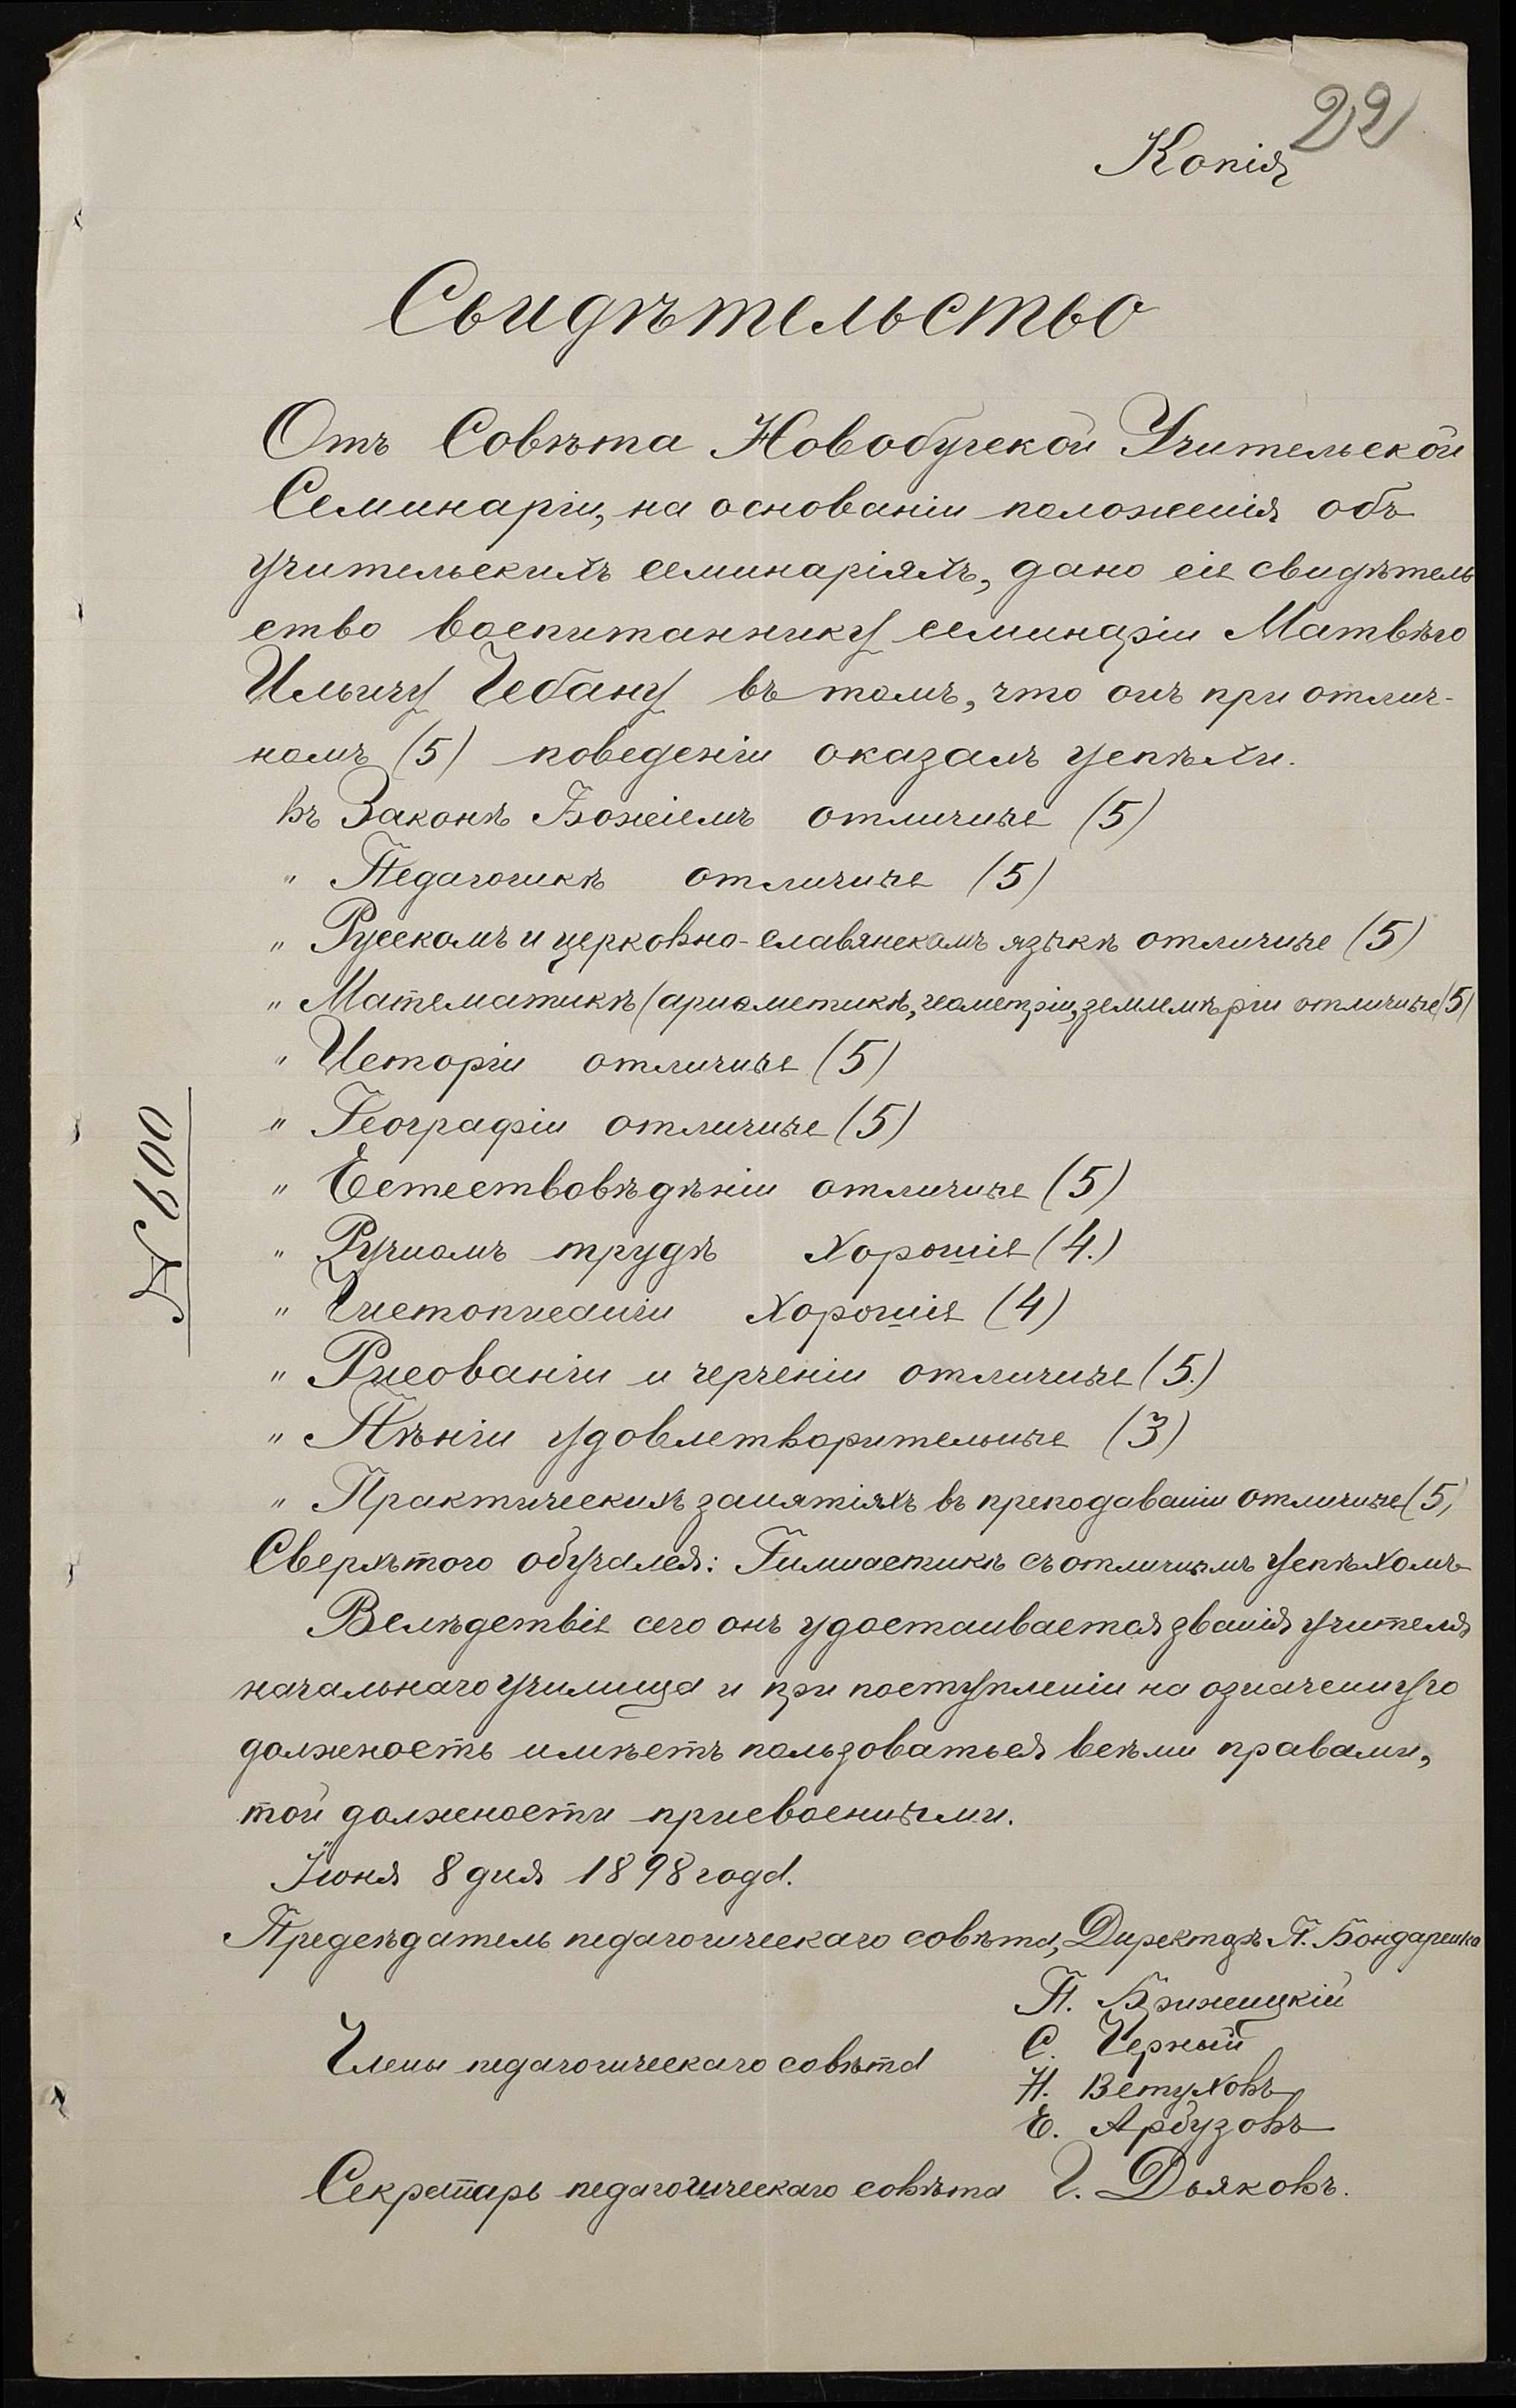 22
Копія
Свидѣтельство
Отъ Совѣта Новобугской Учительской
Семинаріи, на основаніи положенія объ
учительскихъ семинаріяхъ, дано сіе свидѣтель
ство воспитаннику семинаріи Матвѣю
Ильичу Чебану въ томъ, что онъ при отлич-
номъ (5) поведеніи оказалъ успѣхи.
Въ Законѣ Божіемъ отличные (5)
" Педагогикѣ отличные (5)
" Русскомъ и церковно-славянскомъ языкѣ отличные (5)
" Математикѣ (ариѳметикѣ, геометріи, землемѣріи отличные (5)
" Исторіи отличные (5)
" Географіи отличные (5)
" Естествовѣдѣніи отличные (5)
" Ручномъ трудѣ Хорошіе (4.)
" Чистописаніи Хорошіе (4)
" Рисованіи и черченіи отличные (5.)
" Пѣніи удовлетворительные (3)
" Практическихъ занятіяхъ въ преподаваніи отличные (5)
Сверхъ того обучался: Гимнастикѣ съ отличнымъ успѣхомъ
Вслѣдствіе сего онъ удостаивается званія учителя
начальнаго училища и при поступленіи на означенную
должность имѣетъ пользоваться всѣми правами,
той должности присвоенными.
Іюня 8 дня 1898 года.
№ 600
Предсѣдатель педагогическаго совѣта, Директоръ П. Бондаренко
Члены педагогическаго совѣта
П. Бржицкій
С. Черный
Н. Ветуховъ
Е. Арбузовъ
Секретарь педагогическаго совѣта Г. Дьяковъ.